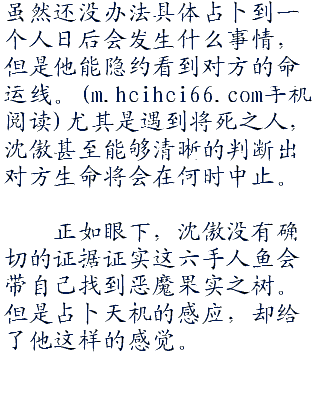 虽然还没办法具体占卜到一
个人日后会发生什么事情，
但是他能隐约看到对方的命
运线。(m.hcihci66.com手机
阅读)尤其是遇到将死之人，
沈傲甚至能够清晰的判断出
对方生命将会在何时中止。
正如眼下，沈傲没有确
切的证据证实这六手人鱼会
带自己找到恶魔果实之树。
但是占卜天机的感应，却给
了他这样的感觉。